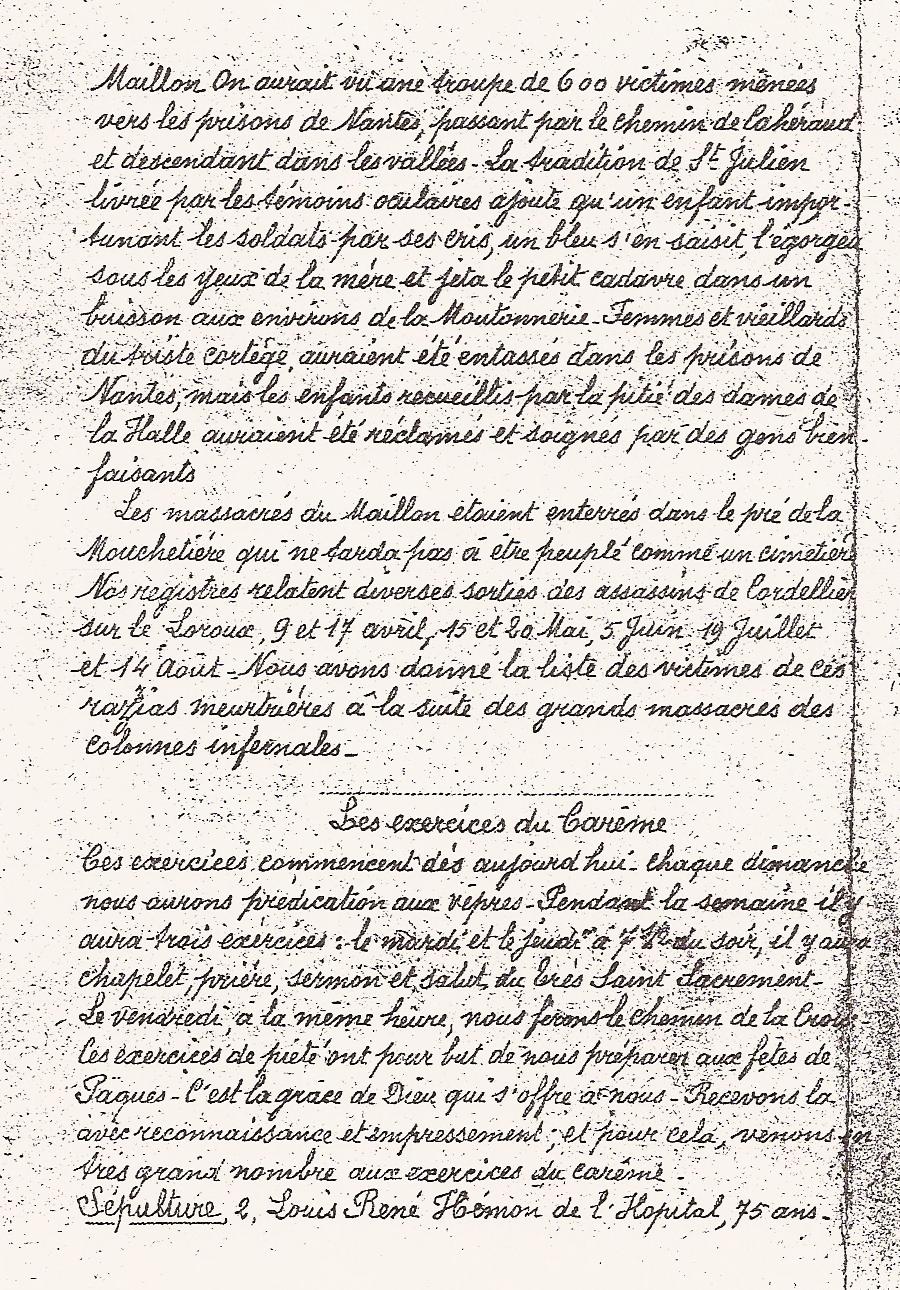 Maillon On aurait vu une troupe de 600 victimes menées
vers les prisons de Nantes, passant par le chemin de Cahéraud
et descendant dans les vallées - La tradition de St Julien
livrée par les témoins oculaires ajoute qu'un enfant impor-
tunant les soldats par ses cris, un bleu s'en saisit, l'égorgea
sous les yeux de la mère et jeta le petit cadavre dans un
buisson aux environs de la Moutonnerie - Femmes et vieillards
du triste cortège, auraient été entassés dans les prisons de
Nantes, mais les enfants recueillis par la pitié des dames de
la Halle auraient été réclamés et soignés par des gens bien-
faisants
Les massacrés du Maillon étaient enterrés dans le pré de la
Mouchetière qui ne tarda pas à être peuplé comme un cimetière
Nos registres relatent diverses sorties des assassins de Cordellier
sur le Loroux, 9 et 17 avril, 15 et 20 Mai, 5 Juin 19 Juillet
et 14 Août - Nous avons donné la liste des victimes de ces
razzias meurtrières à la suite des grands massacres des
colonnes infernales -
Les exercices du Carême
Ces exercices commencent dès aujourd'hui - chaque dimanche
nous aurons prédication aux vêpres - Pendant la semaine il y
aura trois exercices : le mardi et le jeudi à 7 h du soir, il y aura
chapelet, prière, sermon et salut du Très Saint Sacrement -
Le vendredi, à la même heure, nous ferons le chemin de la Croix -
Ces exercices de piété ont pour but de nous préparer aux fêtes de
Pâques - C'est la grâce de Dieu qui s'offre à nous - Recevons la
avec reconnaissance et empressement ; et pour cela, venons en
très grand nombre aux exercices du carême -
Sépulture, 2, Louis René Hémon de l'Hôpital, 75 ans -